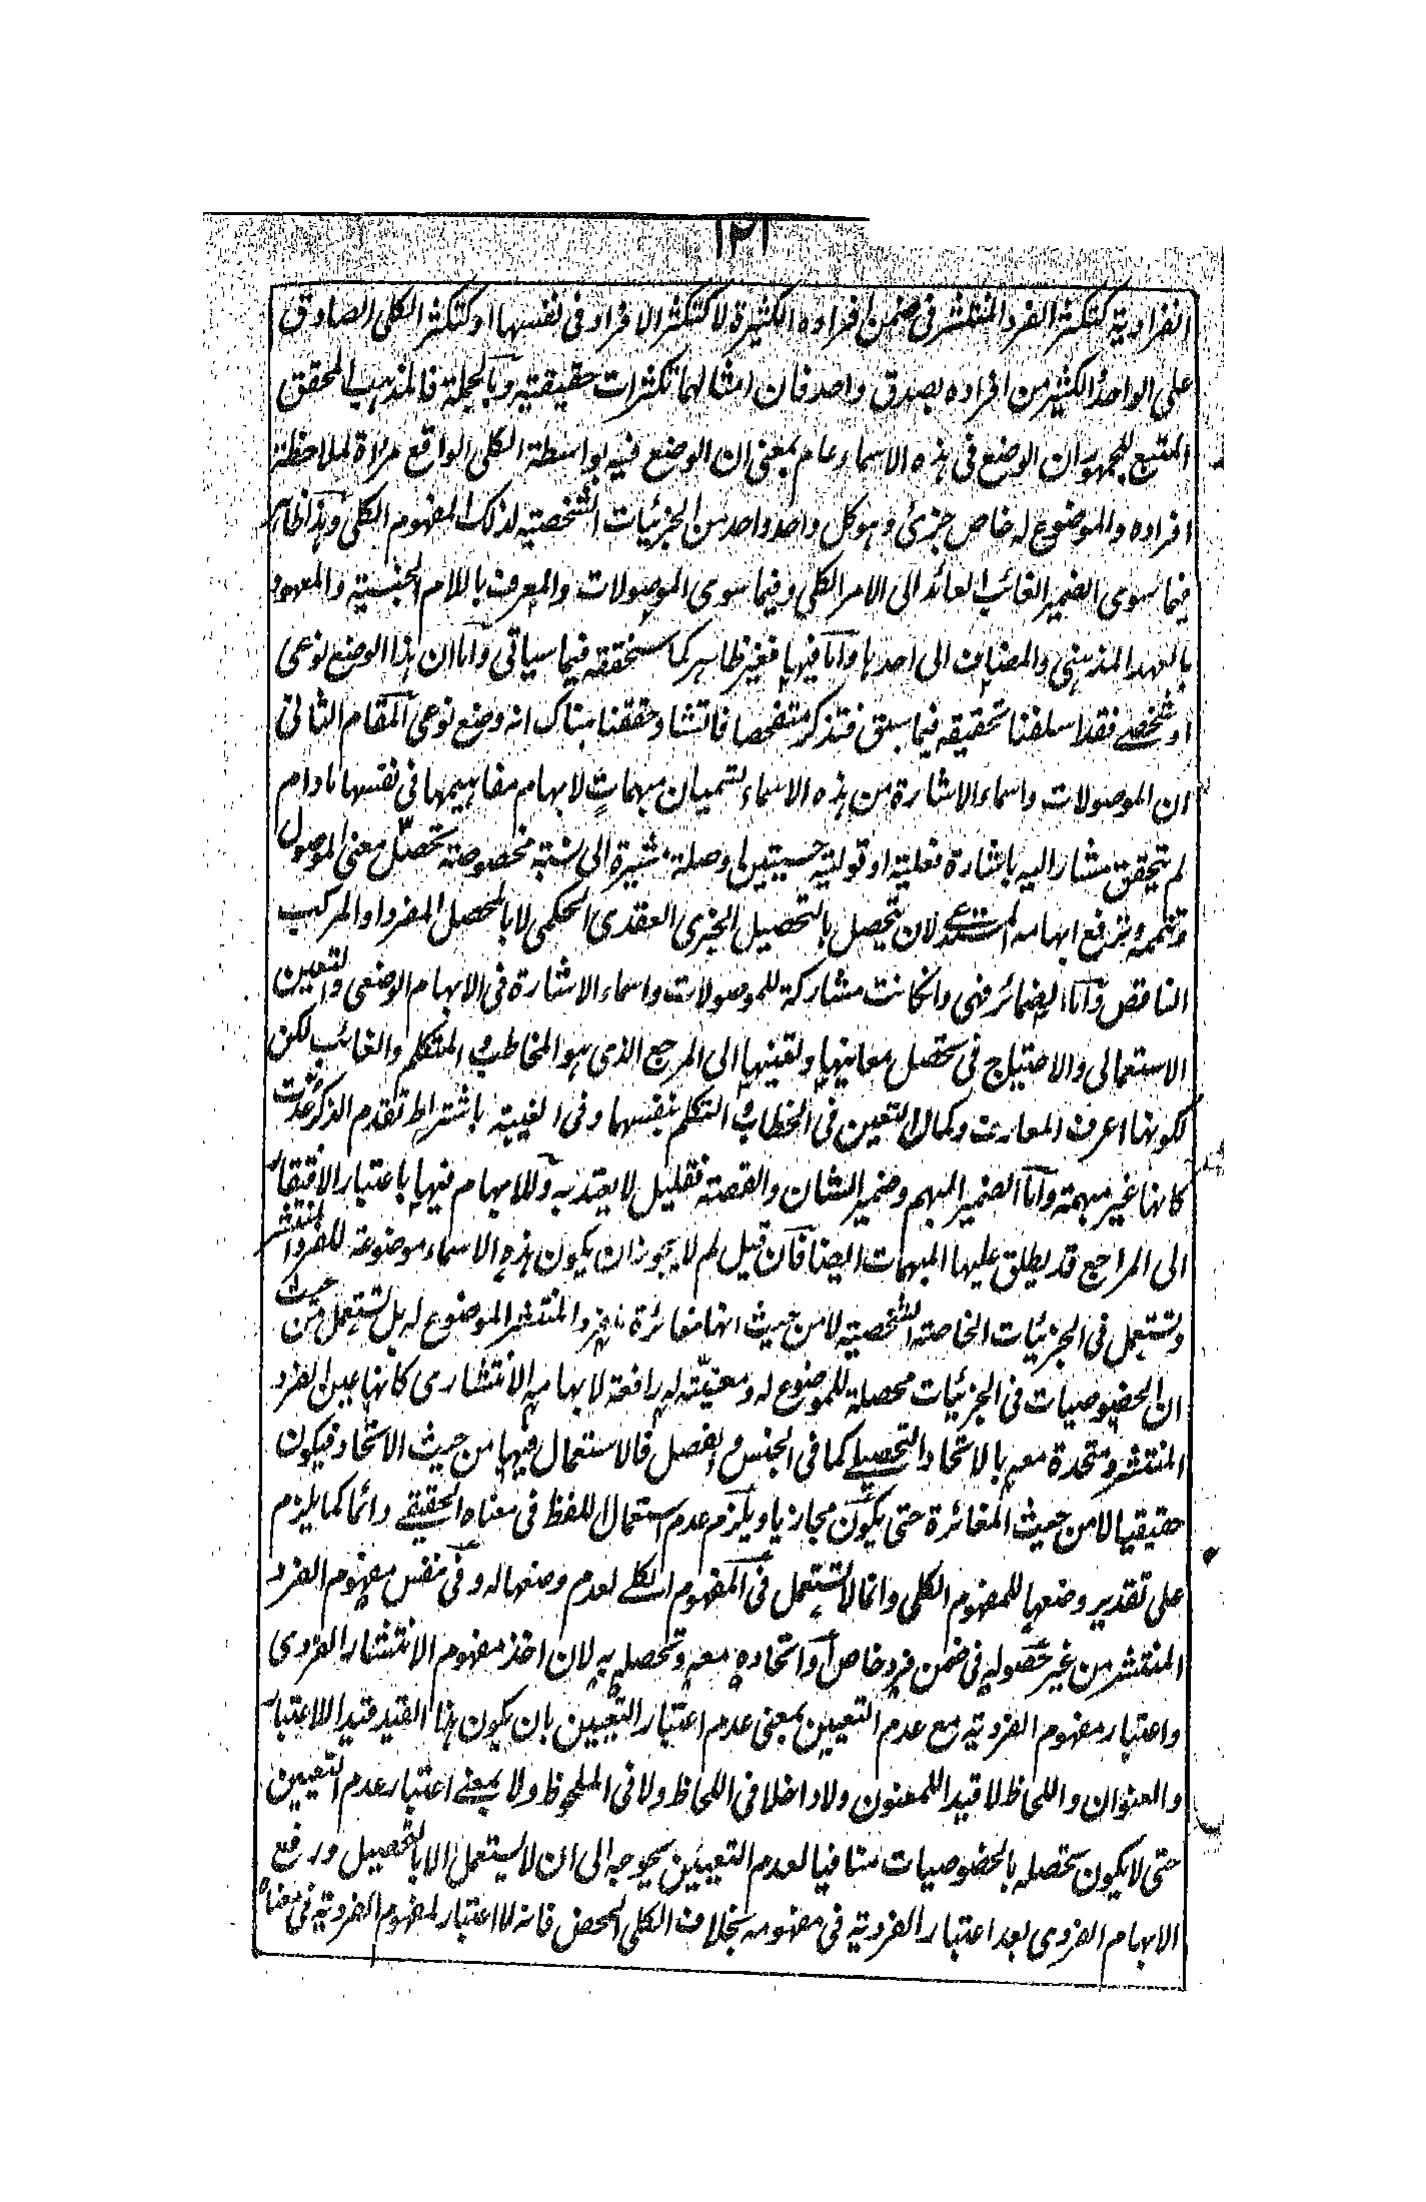 ١٢١
الفرادية كتكثر الفرد المنتشر فى ضمن افراده الكثيرة لا كتكثر الافراد فى نفسها او كتكثر الكلى الصادق
على الواحد الكثير من افراده بصدق واحد فان امثالها تكثرات حقيقية وبالجملة فالمذهب المحقق
المتبع للجمهور ان الوضع فى هذه الاسماء عام بمعنى ان الوضع فيه بواسطة الكلى الواقع مرآة لملاحظة
افراده والموضوع له خاص جزئ وهو كل واحد واحد من الجزئيات الشخصية لذلك المفهوم الكلى وهذا ظاهر
فيما سوى الضمير الغائب العائد الى الامر الكلى وفيما سوى الموصولات والمعرف باللام الجنسية والمعهود
بالعهد الذهنى والمضاف الى احدها واما فيها فغير ظاهر كما سنحققه فيما سياتى واما ان هذا الوضع نوعى
او شخصے فقد اسلفنا تحقيقه فيما سبق فتذكر متفحصا فاتشا وحققنا هناك انه وضع نوعى المقام الثانى
ان الموصولات واسماء الاشارة من هذه الاسماء لتسميان مبهمات لابهام مفاهيمها فى نفسها مادام
لم يتحقق مشار اليه باشارة فعلية او قولية حسيتين او صلة مشيرة الى نسبة مخصوصة تحصل معنى الموصول
متممة وترفع ابهامه لان تحصل بالتحصيل الخبرى العقدى الحكمى لا بالمحصل المفرد او المركب
الناقص واما الضمائر فهى وان كانت مشاركة للموصولات واسماء الاشارة فى الابهام الوضعى والتعين
الاستعمالى والاحتياج فى تحصل معانيها وتعينها الى المرجع الذى هو المخاطب والمتكلم والغائب لكن
لكونها اعرف المعارف وكمال التعين فى الخطاب والتكلم بنفسهما وفى الغيبة باشتراط تقدم الذكر عدت
كانها غير مبهمة واما الضمير المبهم وضمير الشان والقصة فقليل لا يعتد به وللابهام فيها باعتبار الافتقار
الى المراجع قد يطلق عليها المبهمات ايضا فان قيل لم لا يجوز ان يكون هذه الاسماء موضوعة للفرد المنتشر
وتستعمل فى الجزئيات الخاصة الشخصية لا من حيث انها مغائرة للفرد المنتشر الموضوع له بل تستعمل من حيث
ان الخصوصيات فى الجزئيات محصلة للموضوع له ومعينة له رافعة لابهامه الانتشارى كانها عين الفرد
المنتشر ومتحدة معه بالاتحاد التحصيلے كما فى الجنس والفصل فالاستعمال فيها من حيث الاتحاد فيكون
حقيقيا لا من حيث المغائرة حتى يكون مجازيا ويلزم عدم استعمال اللفظ فى معناه الحقيقے دائما كما يلزم
على تقدير وضعها للمفهوم الكلى وانما لا تستعمل فى المفهوم الكلے لعدم وضعها له وفى نفس مفهوم الفرد
المنتشر من غير حصوله فى ضمن فرد خاص او اتحاده معه وتحصله به لان اخذ مفهوم الانتشار الفردى
واعتبار مفهوم الفردية مع عدم التعيين بمعنى عدم اعتبار التعيين بان يكون هذا القيد قيد الاعتبار
والعنوان واللحاظ لا قيدا للمعنون ولا داخلا فى اللحاظ ولا فى الملحوظ ولا بمعنے اعتبار عدم التعيين
حتى لا يكون تحصله بالخصوصيات منافيا لعدم التعيين يحوجه الى ان لا يستعمل الا بالتحصيل ورفع
الابهام الفردى بعد اعتبار الفردية فى مفهومه بخلاف الكلى المحض فانه لا اعتبار لمفهوم الفردية فى معناه